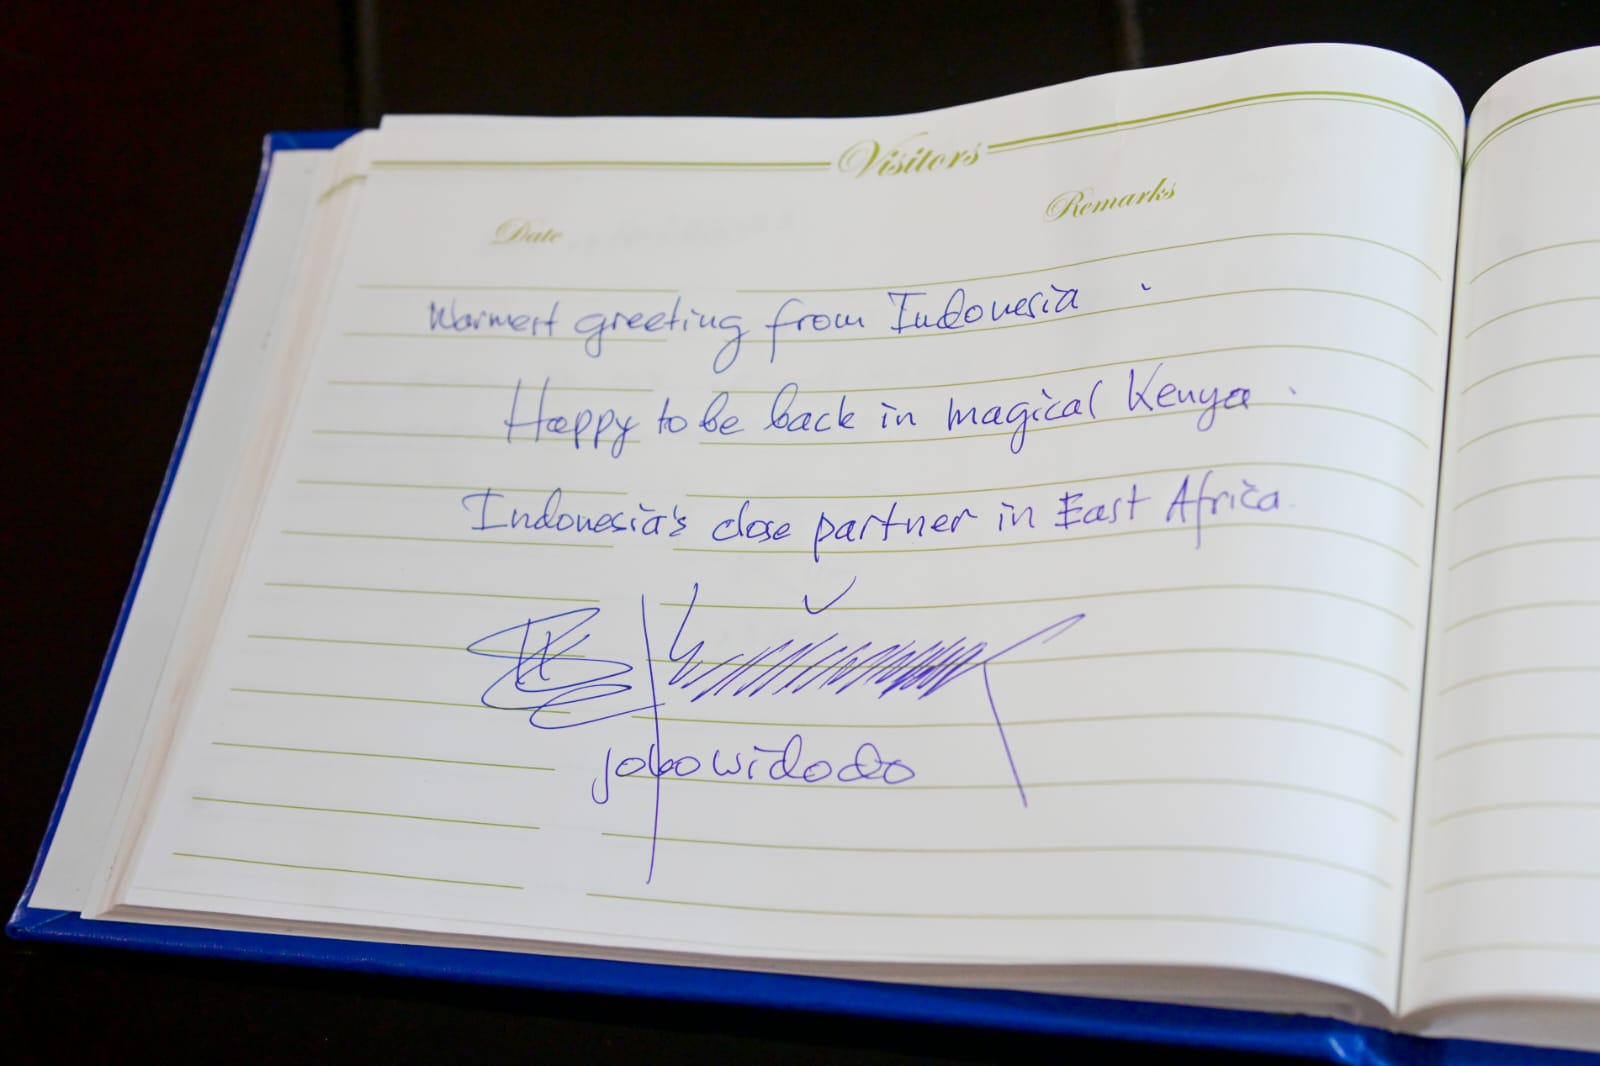 Visitors
Date Remarks
Warmest greeting from Indonesia.
Happy to be back in magical Kenya.
Indonesia's close partner in East Africa.
jokowidodo